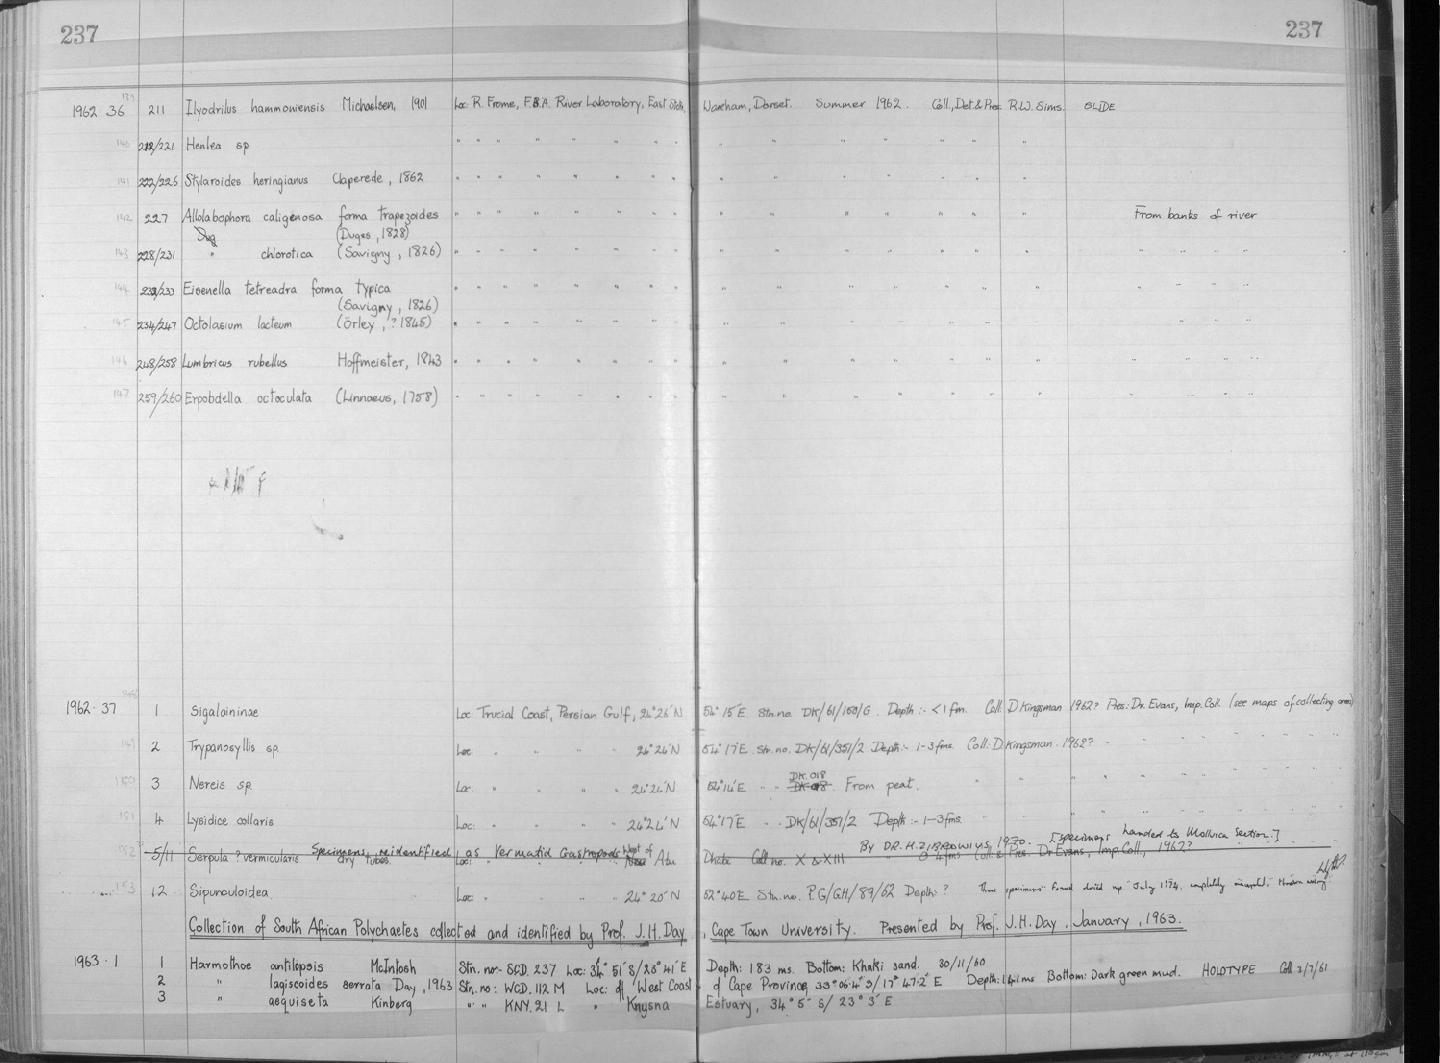 237 237
1962 36 211 Ilyodrilus hammoniensis Michaelsen, 1901 Loc R. Frome, F.B.A. River Laboratory, East Stoke, Wareham, Dorset. Summer 1962. Coll., Det. & Pres. R.W. Sims. SLIDE
212/221 Henlea sp " " " " " " " " " " " " " "
222/226 Stylaroides heringianus Claperede, 1862 " " " " " " " " " " " " " "
227 Allolabophora caligenosa forma trapezoides " " " " " " " " " " " " " " From banks of river
(Duges, 1828)
228/231 " chlorotica (Savigny, 1826) " " " " " " " " " " " " " " " " " "
232/233 Eisenella tetreadra forma typica " " " " " " " " " " " " " " " " " "
(Savigny, 1826)
234/247 Octolasium lacteum (Örley, ? 1845) " " " " " " " " " " " " " " " " "
248/258 Lumbricus rubellus Hoffmeister, 1843 " " " " " " " " " " " " " " " " " "
259/260 Erpobdella octoculata (Linnaeus, 1758) " " " " " " " " " " " " " " " " " "
1962·37 1 Sigalaininae Loc Trucial Coast, Persian Gulf, 24°26'N 54°15'E Stn.no. DK/61/153/G. Depth:- <1 fm. Coll. D Kingsman 1962? Pres: Dr. Evans, Imp. Coll. (see maps of collecting area)
2 Trypanosyllis sp. Loc " " " 24°26'N 54°17'E Stn. no. DK/61/351/2 Depth:- 1-3 fms. Coll. D. Kingsman. 1962?
3 Nereis sp. Loc. " " " 24°24'N 54°14'E " " DK. 018 From peat.
4 Lysidice collaris Loc: " " " 24°24'N 54°17'E " " DK/61/351/2 Depth:- 1-3 fms.
By DR. H. ZIBROWIUS, 1970. [Specimens handed to Mollusca Section.]
5/11 Serpula ? vermicularis Specimens reidentified as Vermatid Gastropods West of Abu Dhabi Coll no. X & XIII Coll. & Pres. Dr Evans, Imp. Coll., 1962?
dry tubes. Loc:
12 Sipunculoidea Loc " " " 24°20'N 52°40E Stn.no. P.G/GH/89/62 Depth:- ? These specimens found dried up July 1974.
Collection of South African Polychaetes collected and identified by Prof. J.H. Day, Cape Town University. Presented by Prof. J.H. Day, January, 1963.
1963·1 1 Harmothoe antilopsis McIntosh Stn. no- SCD. 237 Loc: 34° 51' S/23° 41' E Depth: 183 ms. Bottom: Khaki sand. 30/11/60
2 " lagiscoides serrata Day, 1963 Stn. no: WCD. 112 M Loc: off West Coast of Cape Province, 33°06·4' S/ 17° 47·2' E Depth: 141 ms Bottom: Dark green mud. HOLOTYPE Coll 2/7/61
3 " aequiseta Kinberg " " KNY. 21 L " Knysna Estuary, 34° 5' S/ 23° 3' E